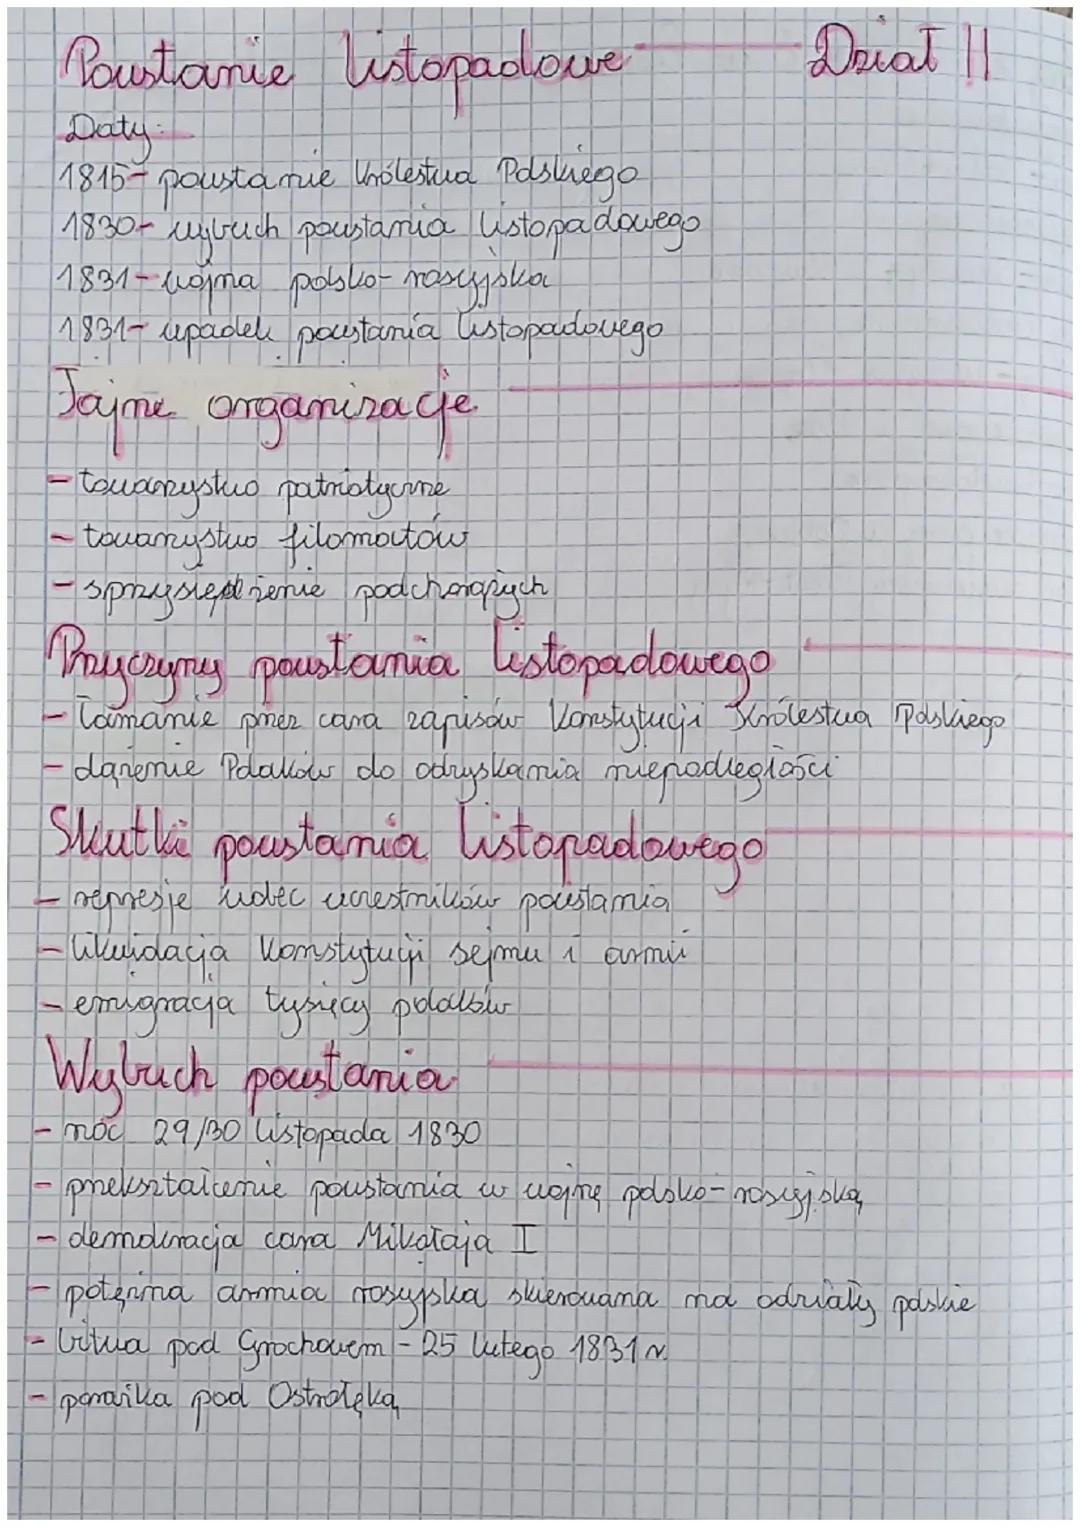 Powstanie listopadowe Dział II
Daty:
1815- powstanie Królestwa Polskiego
1830- wybuch powstania listopadowego
1831- wojna polsko-rosyjska
1831- upadek powstania listopadowego
Tajne organizacje
- towarzystwo patriotyczne
- towarzystwo filomatów
- sprzysiężenie podchorążych
Przyczyny powstania listopadowego
- łamanie przez cara zapisów konstytucji Królestwa Polskiego
- dążenie Polaków do odzyskania niepodległości
Skutki powstania listopadowego
- represje wobec uczestników powstania
- likwidacja konstytucji sejmu i armii
- emigracja tysięcy polaków
Wybuch powstania
- noc 29/30 listopada 1830
- przekształcenie powstania w wojnę polsko-rosyjską
- demokracja cara Mikołaja I
- potężna armia rosyjska skierowana na odziały polskie
- bitwa pod Grochowem - 25 lutego 1831 r.
- porażka pod Ostrołęką